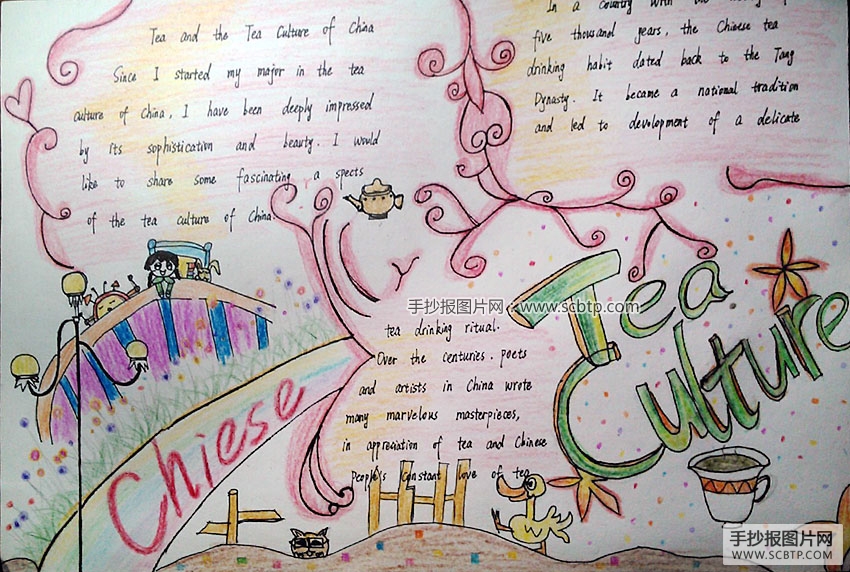 Tea and the Tea Culture of China
Since I started my major in the tea
culture of China, I have been deeply impressed
by its sophistication and beauty. I would
like to share some fascinating a spects
of the tea culture of China.
In a country with the
five thousand years, the Chinese tea
drinking habit dated back to the Tang
Dynasty. It became a national tradition
and led to devolopment of a delicate
手抄报图片网：www.scbtp.com
tea drinking ritual.
Over the centuries. peets
and artists in China wrote
many marvelous masterpieces,
in appreciation of tea and Chinese
people's constant love of tea
Tea
Culture
Chiese
手抄报图片网
WWW.SCBTP.COM